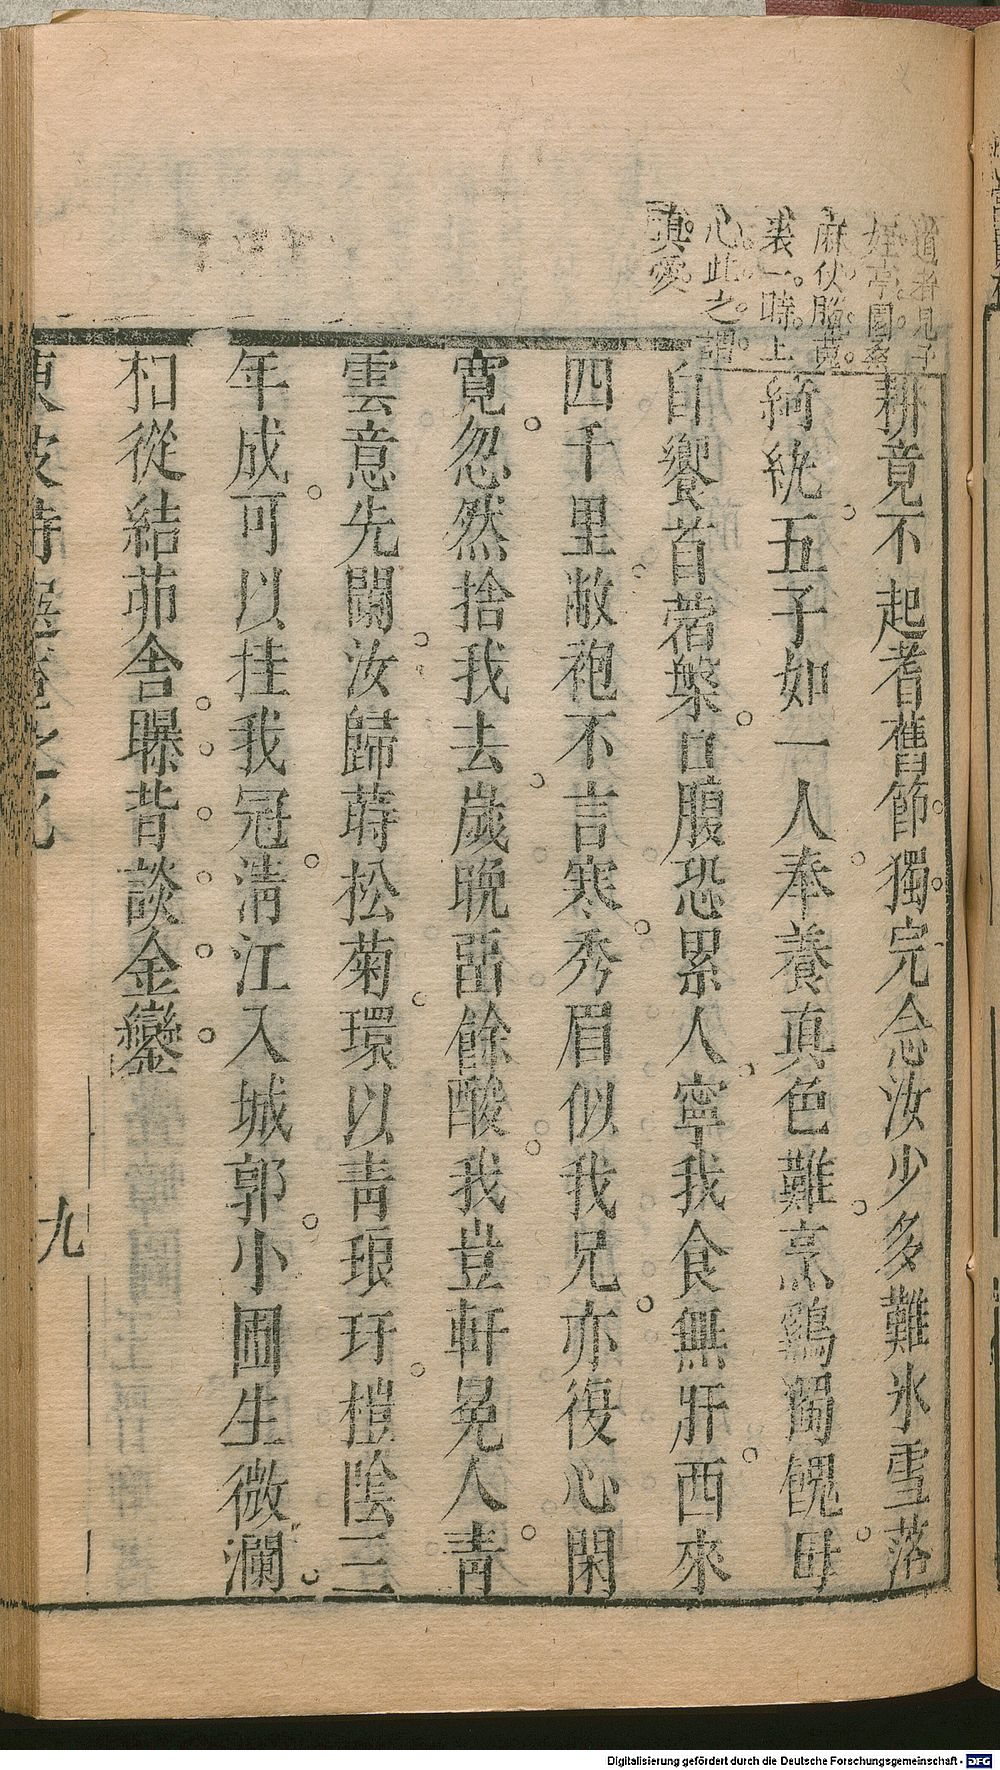 道者見子
姪亭園多
麻伏臘萁
裘一時上
心此之謂
真愛
耕竟不起耆舊節獨完念汝少多難氷雪落
綺紈五子如一人奉養真色難烹鷄獨餽母
自饗苜蓿槃口腹恐累人寧我食無肝西來
四千里敝袍不言寒秀眉似我兄亦復心閑
寬忽然捨我去歲晚畱餘酸我豈軒冕人青
雲意先闌汝歸蒔松菊環以青琅玕榿陰三
年成可以挂我冠清江入城郭小圃生微瀾
相從結茆舍曝背談金鑾
東坡詩選卷之九
九
Digitalisierung gefördert durch die Deutsche Forschungsgemeinschaft - DFG